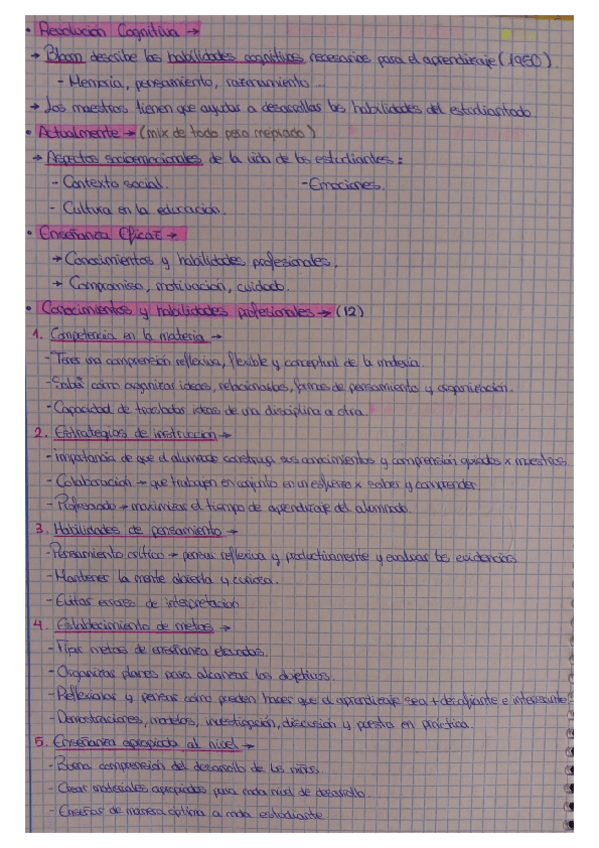 • Revolución Cognitiva →
→ Bloom describe las habilidades cognitivas necesarias para el aprendizaje (1950).
- Memoria, pensamiento, razonamiento ...
→ Los maestros tienen que ayudar a desarrollar las habilidades del estudiantado.
• Actualmente → (mix de todo pero mejorado)
→ Aspectos socioemocionales de la vida de los estudiantes :
- Contexto social. - Emociones.
- Cultura en la educación.
• Enseñanza Eficaz →
→ Conocimientos y habilidades profesionales.
→ Compromiso, motivación, cuidado.
• Conocimientos y habilidades profesionales → (12)
1. Competencia en la materia →
- Tener una comprensión reflexiva, flexible y conceptual de la materia.
- Saber cómo organizar ideas, relacionarlas, formas de pensamiento y organización.
- Capacidad de trasladar ideas de una disciplina a otra.
2. Estrategias de instrucción →
- Importancia de que el alumnado construya sus conocimientos y comprensión guiados x maestros.
- Colaboración → que trabajen en conjunto en un esfuerzo x saber y comprender.
- Profesorado → maximizar el tiempo de aprendizaje del alumnado.
3. Habilidades de pensamiento →
- Pensamiento crítico → pensar reflexiva y productivamente y evaluar las evidencias.
- Mantener la mente abierta y curiosa.
- Evitar errores de interpretación
4. Establecimiento de metas →
- Fijar metas de enseñanza elevadas.
- Organizar planes para alcanzar los objetivos.
- Reflexionar y pensar cómo pueden hacer que el aprendizaje sea + desafiante e interesante.
- Demostraciones, modelos, investigación, discusión y puesta en práctica.
5. Enseñanza apropiada al nivel →
- Buena comprensión del desarrollo de los niños.
- Crear materiales apropiados para cada nivel de desarrollo.
- Enseñar de manera óptima a cada estudiante